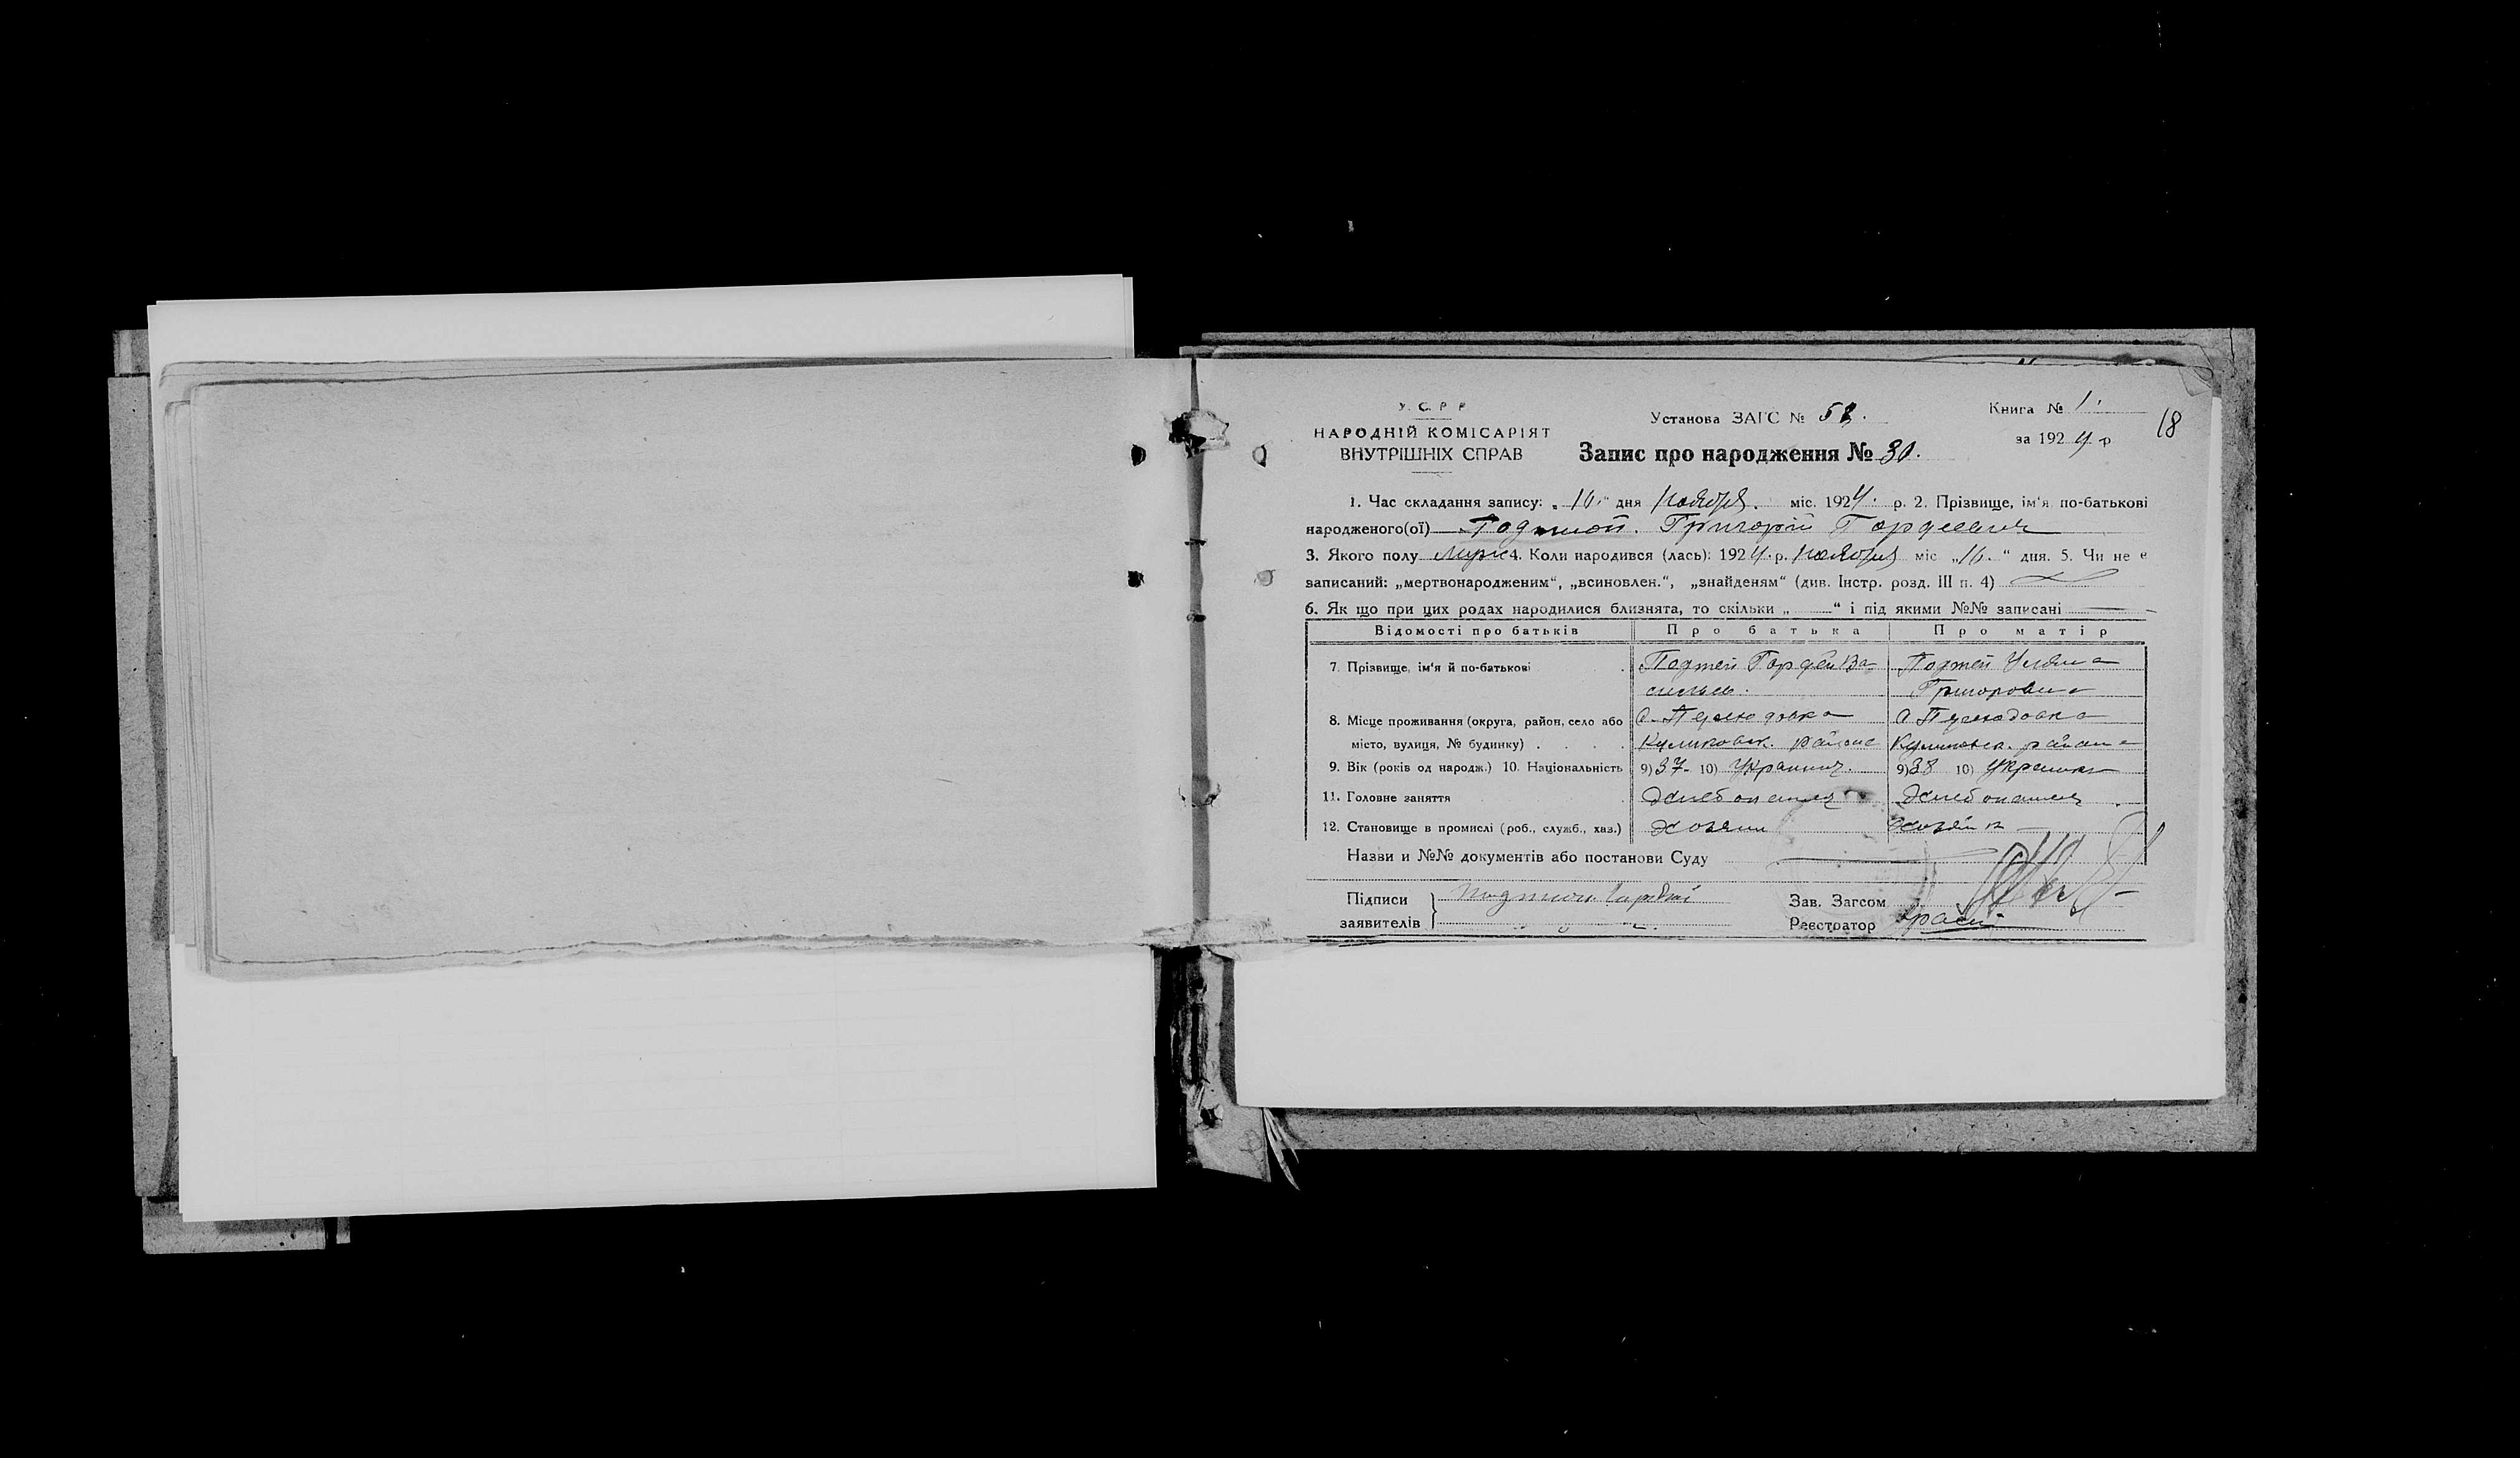 У. С. Р. Р.
НАРОДНІЙ КОМІСАРІЯТ
ВНУТРІШНІХ СПРАВ
Установа ЗАГС №
Запис про народження № 30.
Книга № 1.
за 1924 р
18
1. Час складання запису: „16“ дня Ноября. міс. 1924. р. 2. Прізвище, ім‘я по-батькові
народженого(ої) Григорій Гордеевич
3. Якого полу 4. Коли народився (лась): 1924. р. Ноября міс „16.“ дня. 5. Чи не є
записаний: „мертвонародженим“, „всиновлен.“, „знайденям“ (див. Інстр. розд. III п. 4)
6. Як що при цих родах народилися близнята, то скільки „ “ і під якими №№ записані
Відомості про батьків Про батька Про матір
7. Прізвище, ім‘я й по-батькові Гордей Ва- Уляна
сильев. Григоровна
8. Місце проживання (округа, район, село або
місто, вулиця, № будинку) . . . . Куликовск. района Куликовск. района
9. Вік (років од народж.) 10. Національність 9) 37- 10) Украинец. 9) 38 10) Украинка
11. Головне заняття Хлебопашец Хлебопашец
12. Становище в промислі (роб., служб., хаз.) Хозяин Хозяйка
Назви и №№ документів або постанови Суду
Підписи
заявителів
Зав. Загсом
Реєстратор